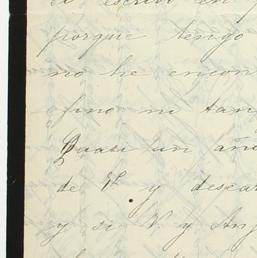 escribo en
porque tengo
no he encon
fino ni tan
Quasi un año
de V. y desea
y si V. y Ang